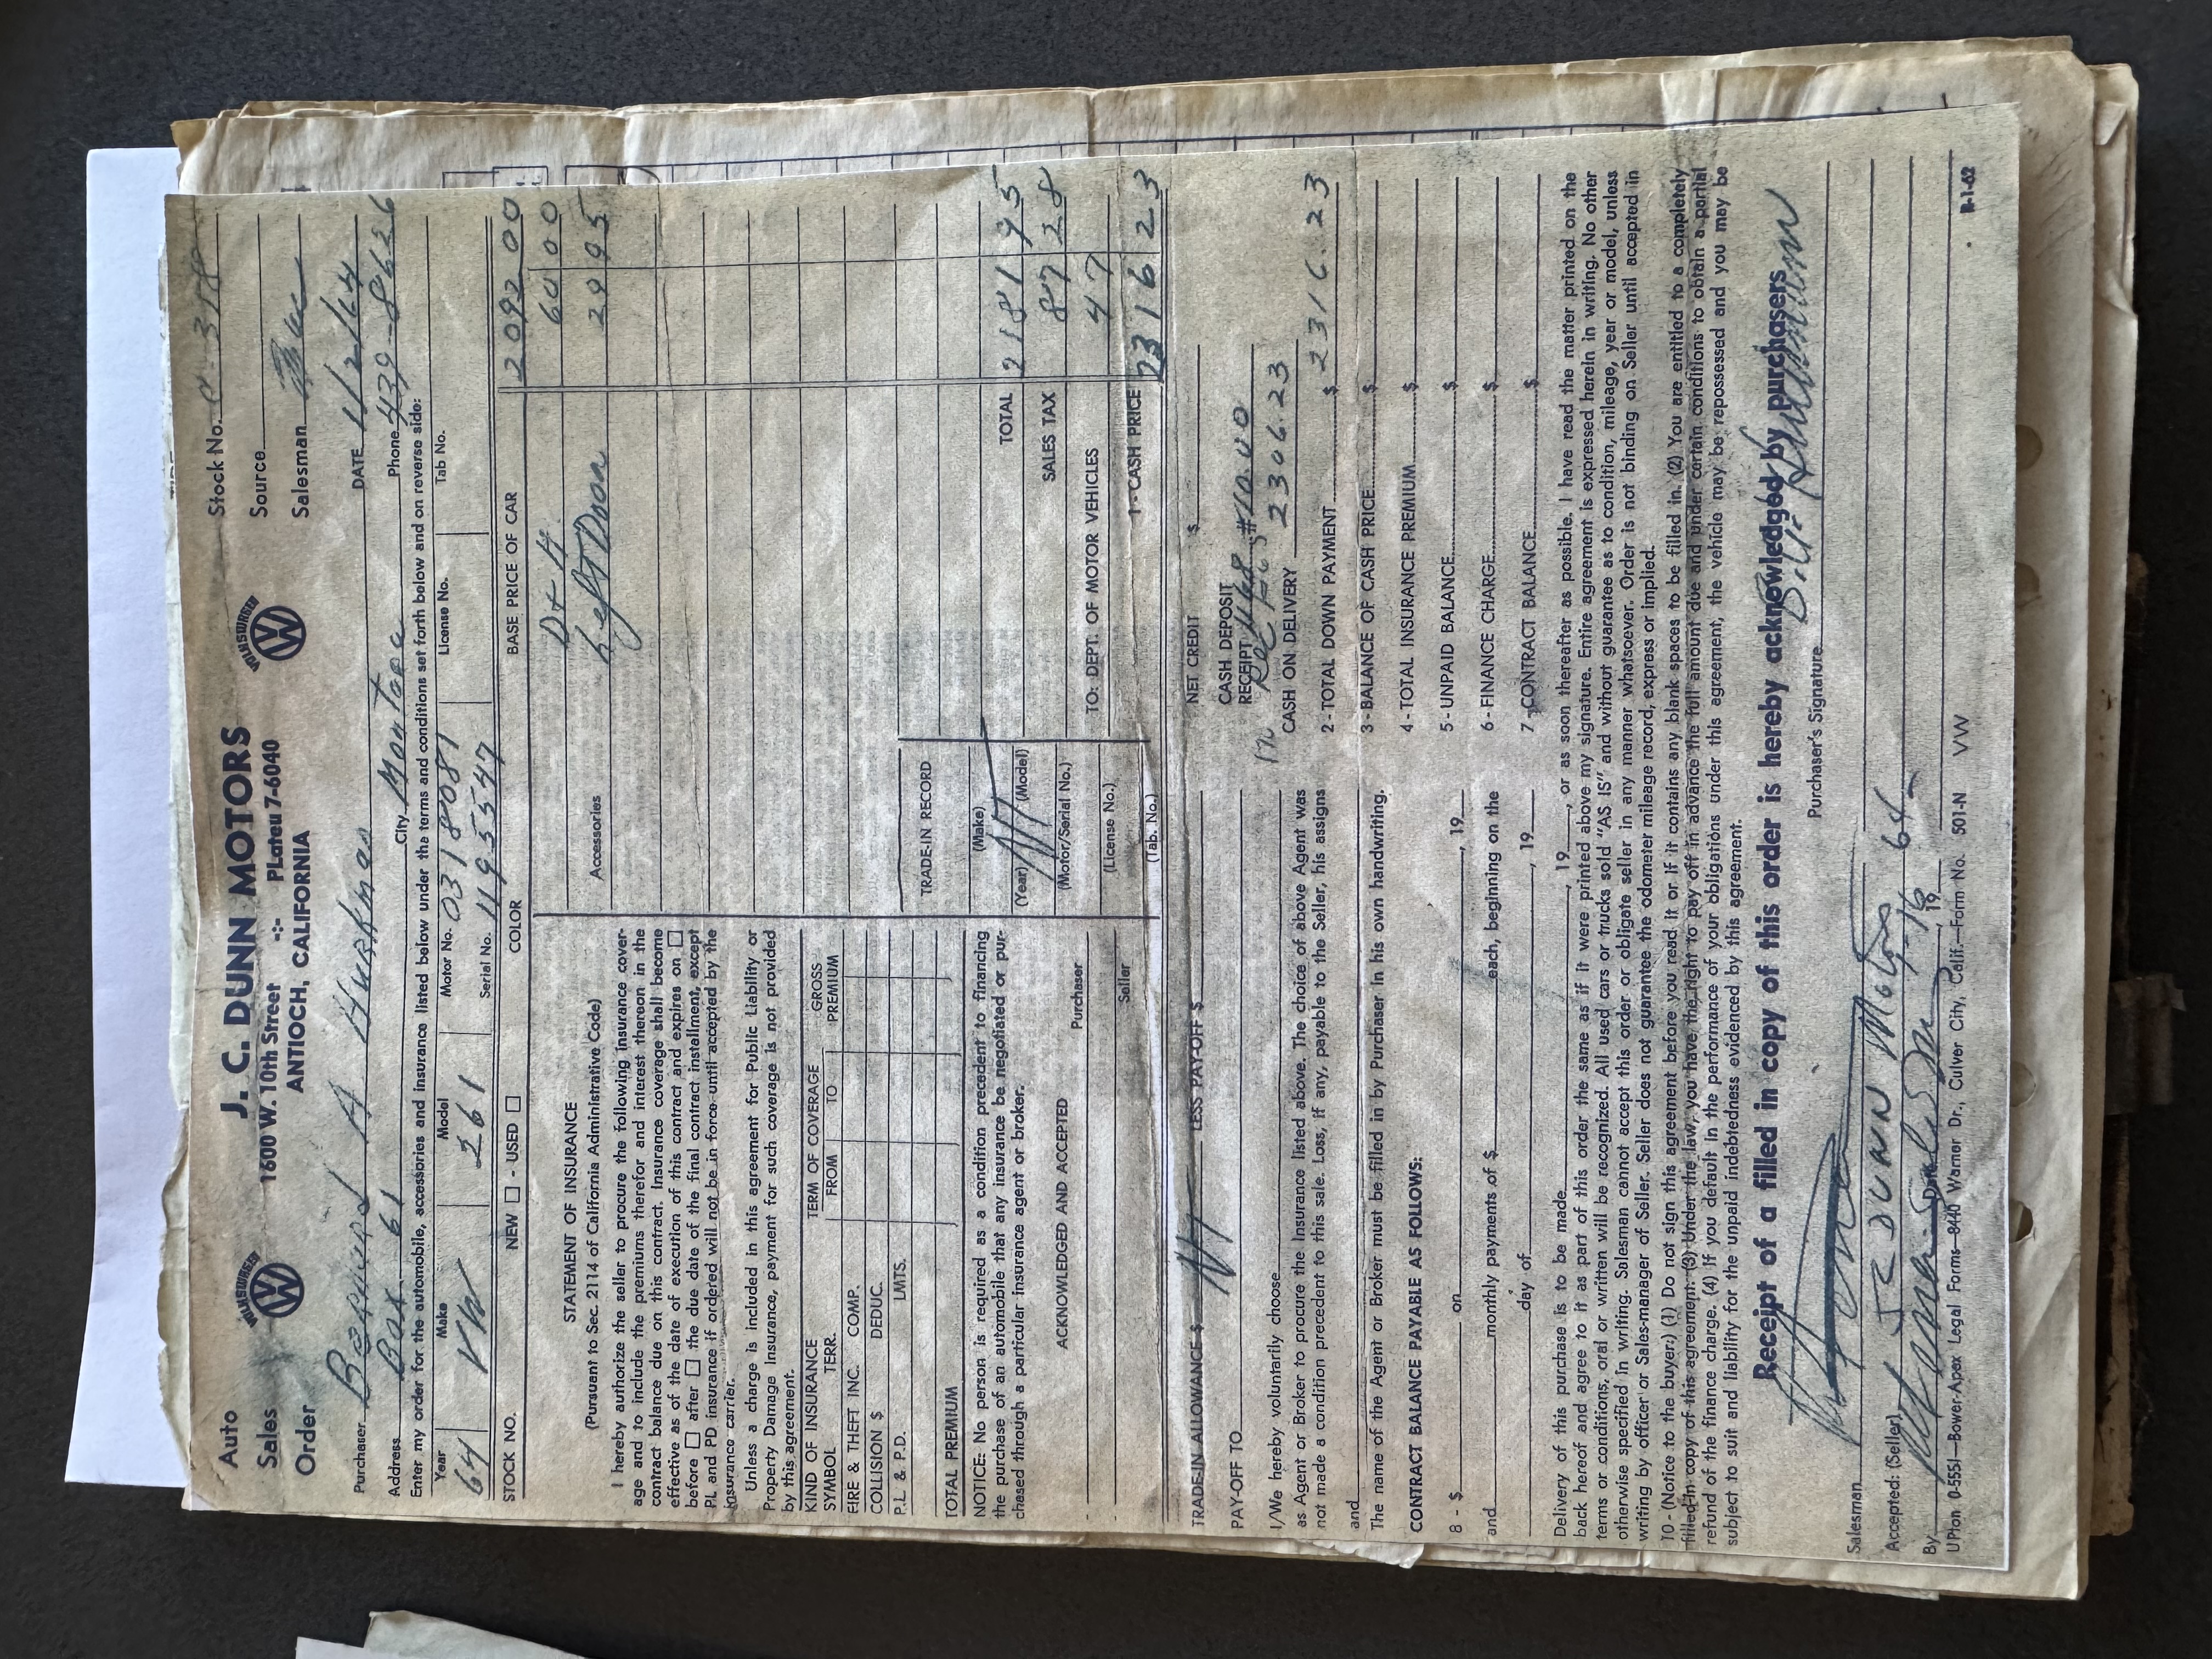 Auto
Sales
Order
VOLKSWAGEN
J. C. DUNN MOTORS
1600 W. 10th Street -:- PLateu 7-6040
ANTIOCH, CALIFORNIA
VOLKSWAGEN
Stock No. 318
Source
Salesman
Purchaser Bernard A DATE 1/2/64
Address Box 61 City Phone 439-8626
Enter my order for the automobile, accessories and insurance listed below under the terms and conditions set forth below and on reverse side:
Year Make Model Motor No. 0318081 License No. Tab No.
64 VW 261 Serial No. 1195547
STOCK NO. NEW ☐ - USED ☐ COLOR BASE PRICE OF CAR 2092 00
D + H 60 00
Accessories Left Door 29 95
STATEMENT OF INSURANCE
(Pursuant to Sec. 2114 of California Administrative Code)
I hereby authorize the seller to procure the following insurance cover-
age and to include the premiums therefor and interest thereon in the
contract balance due on this contract. Insurance coverage shall become
effective as of the date of execution of this contract and expires on ☐
before ☐ after ☐ the due date of the final contract installment, except
PL and PD insurance if ordered will not be in force until accepted by the
insurance carrier.
Unless a charge is included in this agreement for Public Liability or
Property Damage Insurance, payment for such coverage is not provided
by this agreement.
KIND OF INSURANCE TERM OF COVERAGE GROSS
SYMBOL TERR. FROM TO PREMIUM
FIRE & THEFT INC. COMP.
COLLISION $ DEDUC.
P.L. & P.D. LMTS.
TOTAL PREMIUM
NOTICE: No person is required as a condition precedent to financing
the purchase of an automobile that any insurance be negotiated or pur-
chased through a particular insurance agent or broker.
ACKNOWLEDGED AND ACCEPTED Purchaser
Seller
TRADE-IN RECORD
(Make)
(Year) (Model)
(Motor/Serial No.)
(License No.)
(Tab. No.)
TOTAL 2181 95
SALES TAX 87 28
TO: DEPT. OF MOTOR VEHICLES 47
1 - CASH PRICE 2316 23
TRADE-IN ALLOWANCE $ LESS PAY-OFF $ NET CREDIT $
PAY-OFF TO
CASH DEPOSIT
RECEIPT #10.00
CASH ON DELIVERY 2306.23
I/We hereby voluntarily choose
as Agent or Broker to procure the Insurance listed above. The choice of above Agent was
not made a condition precedent to this sale. Loss, if any, payable to the Seller, his assigns
and
The name of the Agent or Broker must be filled in by Purchaser in his own handwriting.
CONTRACT BALANCE PAYABLE AS FOLLOWS:
8 - $ on , 19
and monthly payments of $ each, beginning on the
day of , 19
2 - TOTAL DOWN PAYMENT $ 2316.23
3 - BALANCE OF CASH PRICE $
4 - TOTAL INSURANCE PREMIUM $
5 - UNPAID BALANCE $
6 - FINANCE CHARGE $
7 - CONTRACT BALANCE $
Delivery of this purchase is to be made , 19 , or as soon thereafter as possible. I have read the matter printed on the
back hereof and agree to it as part of this order the same as if it were printed above my signature. Entire agreement is expressed herein in writing. No other
terms or conditions, oral or written will be recognized. All used cars or trucks sold "AS IS" and without guarantee as to condition, mileage, year or model, unless
otherwise specified in writing. Salesman cannot accept this order or obligate seller in any manner whatsoever. Order is not binding on Seller until accepted in
writing by officer or Sales-manager of Seller. Seller does not guarantee the odometer mileage record, express or implied.
10 - (Notice to the buyer:) (1) Do not sign this agreement before you read it or if it contains any blank spaces to be filled in. (2) You are entitled to a completely
filled-in copy of this agreement. (3) Under the law, you have the right to pay off in advance the full amount due and under certain conditions to obtain a partial
refund of the finance charge. (4) If you default in the performance of your obligations under this agreement, the vehicle may be repossessed and you may be
subject to suit and liability for the unpaid indebtedness evidenced by this agreement.
Receipt of a filled in copy of this order is hereby acknowledged by purchasers
Purchaser's Signature
Salesman
Accepted: (Seller) J C DUNN Motors
By Date 1-16 19 64
UPton 0-5551—Bower-Apex Legal Forms—8440 Warner Dr., Culver City, Calif.—Form No. 501-N VW R-1-62